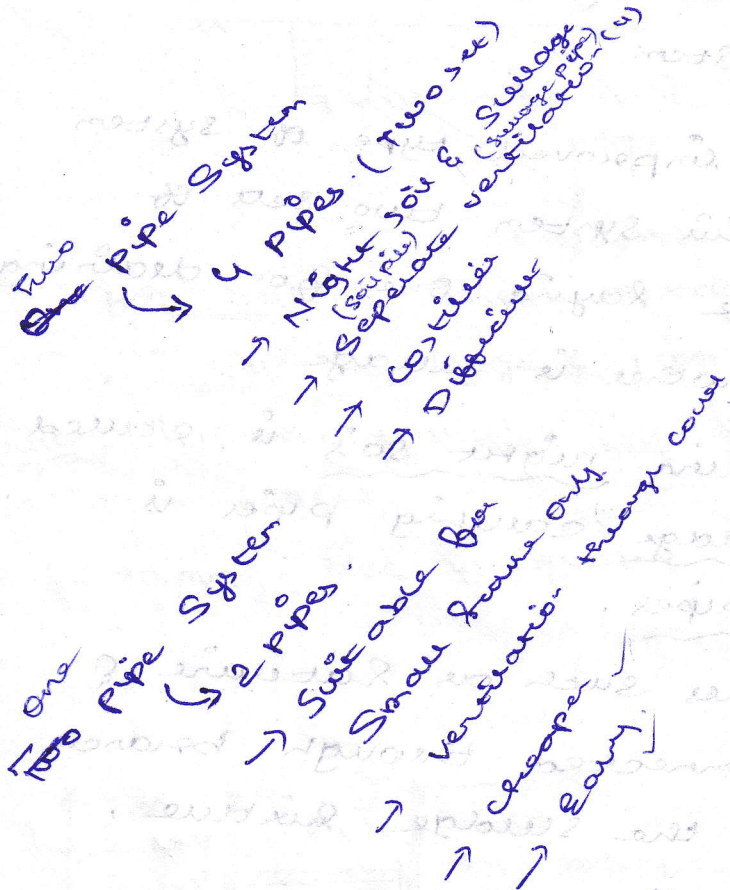 Two
One pipe System
→ 4 Pipes. (Two set)
→ Night Soil & Sullage
(Soil pipe) (Sullage pipe)
→ Seperate ventilation (4)
→ Costlier
→ Difficult
One
Two pipe System
→ 2 Pipes.
→ Suitable for
Small Scale only
→ ventilation through cowl
→ Cheaper
→ Easy